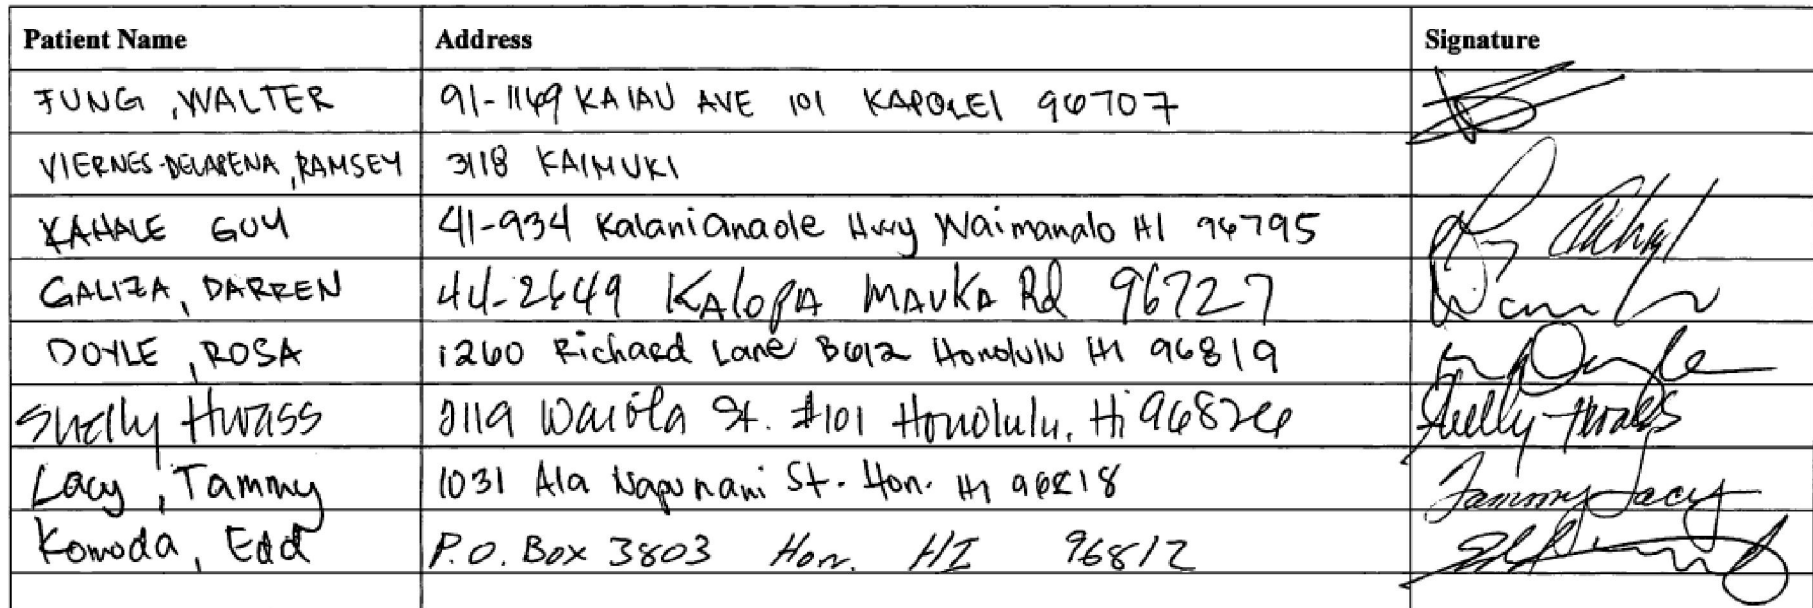 Patient Name Address Signature
FUNG, WALTER 91-1169 KAIAU AVE 101 KAPOLEI 96707
VIERNES-DELAPENA, RAMSEY 3118 KAIMUKI
KAHALE GUY 41-934 Kalanianaole Hwy Waimanalo HI 96795
GALIZA, DARREN 44-2649 KALOPA MAUKA Rd 96727
DOYLE, ROSA 1260 Richard Lane B612 Honolulu HI 96819
Shelly Hwass 2119 Waiola St. #101 Honolulu, Hi 96826 Shelly Hwass
Lacy, Tammy 1031 Ala Napunani St. Hon. HI 96818 Tammy Lacy
Komoda, Edd P.O. Box 3803 Hon. HI 96812